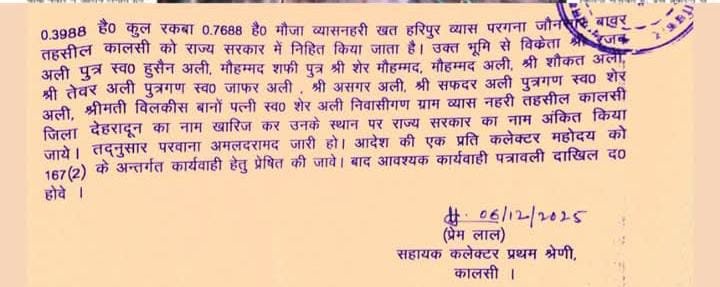 0.3988 है0 कुल रकबा 0.7688 है0 मौजा व्यासनहरी खत हरिपुर व्यास परगना जौनसार बावर
तहसील कालसी को राज्य सरकार में निहित किया जाता है। उक्त भूमि से विक्रेता श्री रजब
अली पुत्र स्व0 हुसैन अली, मौहम्मद शफी पुत्र श्री शेर मौहम्मद, मौहम्मद अली, श्री शौकत अली,
श्री तेवर अली पुत्रगण स्व0 जाफर अली , श्री असगर अली, श्री सफदर अली पुत्रगण स्व0 शेर
अली, श्रीमती विलकीस बानों पत्नी स्व0 शेर अली निवासीगण ग्राम व्यास नहरी तहसील कालसी
जिला देहरादून का नाम खारिज कर उनके स्थान पर राज्य सरकार का नाम अंकित किया
जाये। तद्नुसार परवाना अमलदरामद जारी हो। आदेश की एक प्रति कलेक्टर महोदय को
167(2) के अन्तर्गत कार्यवाही हेतु प्रेषित की जावे। बाद आवश्यक कार्यवाही पत्रावली दाखिल द0
होवे ।
06/12/2025
(प्रेम लाल)
सहायक कलेक्टर प्रथम श्रेणी,
कालसी ।